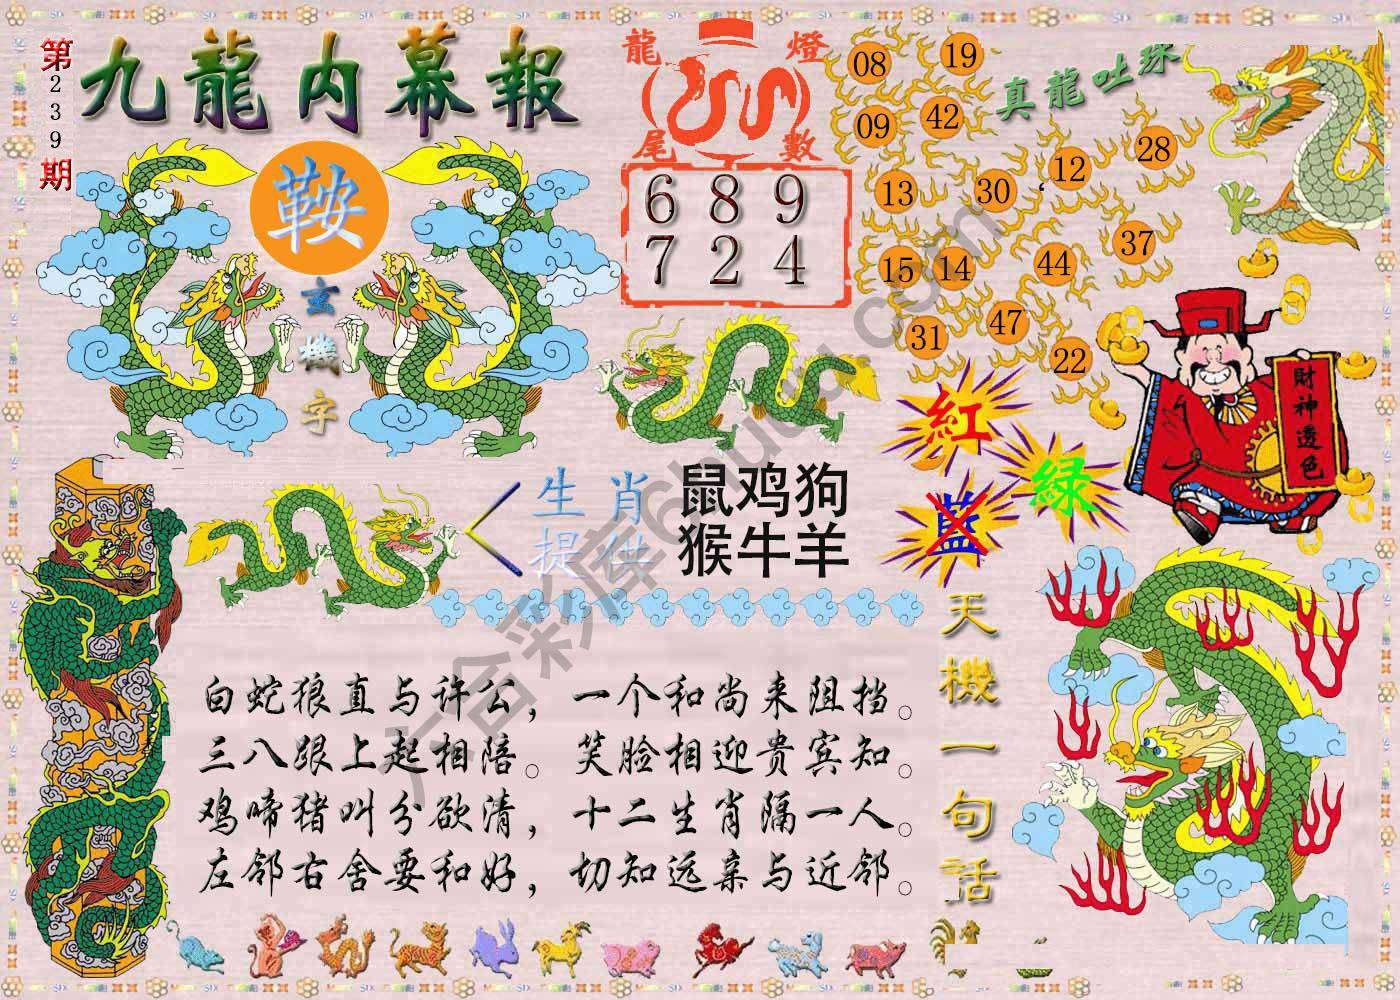 第239期
九龍內幕報
鞍
玄機字
龍燈尾數
6 8 9
7 2 4
真龍吐珠
08 19
09 42
12 28
13 30
37
15 14 44
31 47
22
財神透色
紅
綠
藍
生肖提供
鼠鸡狗
猴牛羊
天機一句话
白蛇狼直与许公，一个和尚来阻挡。
三八跟上起相陪。笑脸相迎贵宾知。
鸡啼猪叫分欲清，十二生肖隔一人。
左邻右舍要和好，切知远亲与近邻。